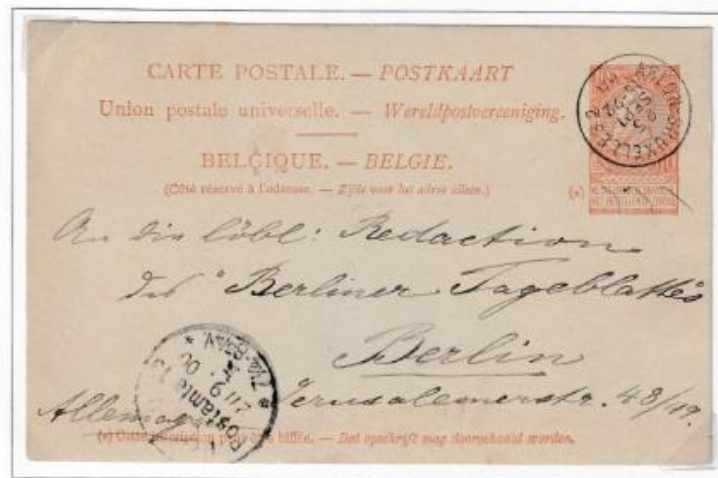 CARTE POSTALE. — POSTKAART
Union postale universelle. — Wereldpostvereeniging.
BELGIQUE. — BELGIE.
(Côté réservé à l'adresse. — Zijde voor het adres alleen.)
(*)
An die löbl: Redaction
des "Berliner Tageblattes
Berlin
Jerusalemerstr. 48/49.
Allemagne
(*) Cette inscription peut être biffée. — Dat opschrift mag doorgehaald worden.
ARLON-BRUXELLES 2